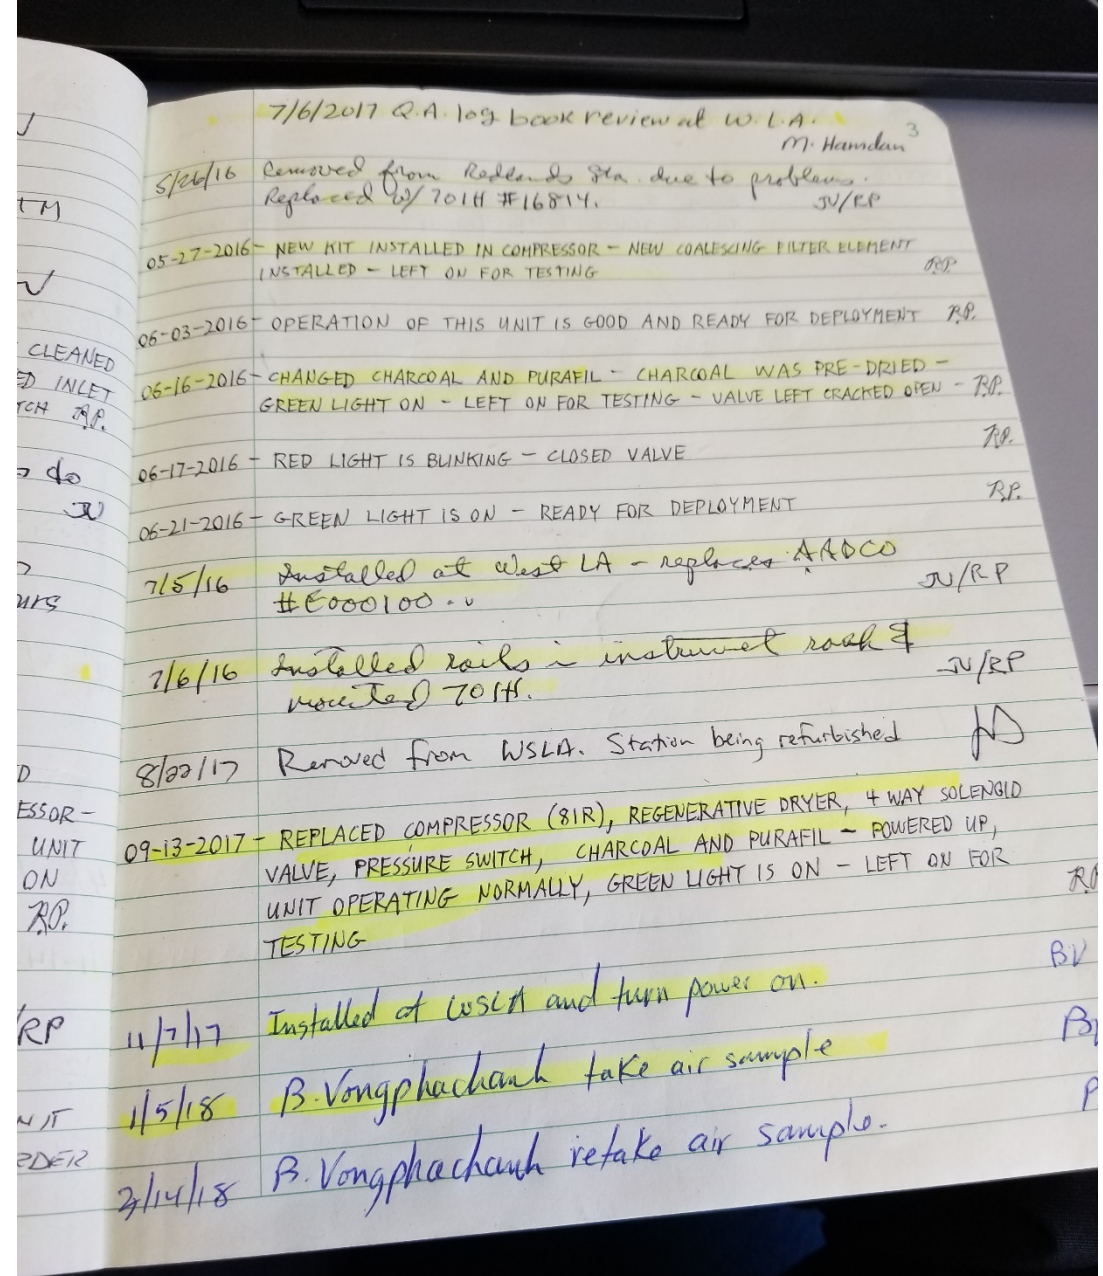 7/6/2017 Q.A. log book review at W.L.A.
M. Hamdan 3
5/26/16 Removed from Redlands Sta. due to problems.
Replaced w/ 701H #16814. JV/RP
05-27-2016 - NEW KIT INSTALLED IN COMPRESSOR - NEW COALESCING FILTER ELEMENT
INSTALLED - LEFT ON FOR TESTING RP.
06-03-2016 - OPERATION OF THIS UNIT IS GOOD AND READY FOR DEPLOYMENT R.P.
06-16-2016 - CHANGED CHARCOAL AND PURAFIL - CHARCOAL WAS PRE-DRIED -
GREEN LIGHT ON - LEFT ON FOR TESTING - VALVE LEFT CRACKED OPEN - R.P.
06-17-2016 - RED LIGHT IS BLINKING - CLOSED VALVE R.P.
06-21-2016 - GREEN LIGHT IS ON - READY FOR DEPLOYMENT R.P.
7/5/16 Installed at West LA - replaces AADCO
#E000100. JV/RP
7/6/16 Installed rails in instrument rack &
mounted 701H. JV/RP
8/22/17 Removed from WSLA. Station being refurbished
09-13-2017 - REPLACED COMPRESSOR (81R), REGENERATIVE DRYER, 4 WAY SOLENOID
VALVE, PRESSURE SWITCH, CHARCOAL AND PURAFIL - POWERED UP,
UNIT OPERATING NORMALLY, GREEN LIGHT IS ON - LEFT ON FOR
TESTING RP
11/7/17 Installed at WSLA and turn power on. BV
1/5/18 B. Vongphachanh take air sample
2/14/18 B. Vongphachanh retake air sample.
TM
CLEANED
INLET
R.P.
do
JV
D
UNIT
ON
R.P.
RP